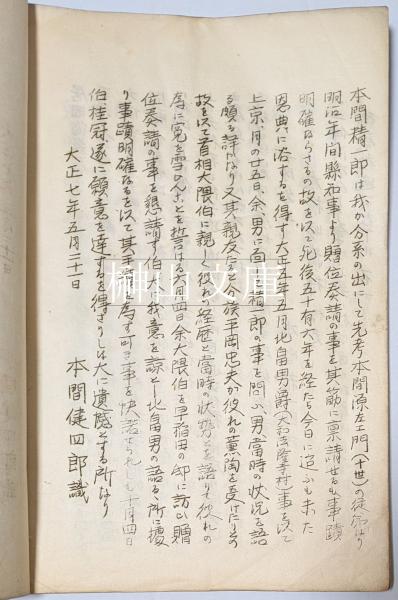 本間精一郎は我か分系の出にして先考本間源左エ門(十世)の従弟なり
明治年間縣知事より贈位奏請の事を其筋に禀請せるも事蹟
明確ならさるの故を以て死後五十有六年を経たる今日に迨ふも未た
恩典に浴するを得す大正五年五月北畠男爵(大和法隆寺村)事を以て
上京月の廿五日余男に面し精一郎の事を問ふ男當時の状況を語
る頗る詳かなり又其親友たる分族平岡忠夫か彼れの薫陶を受けたりその
故を以て首相大隈伯に親しく彼れの経歴と當時の状勢とを語りて彼れの
為に寃を雪かんことを誓はる 月四日余大隈伯を早稲田の邸に訪ひ贈
位奏請の事を懇請す伯大に我意を諒とし北畠男の語る所に據
り事蹟明確なるを以て其手續を為す可き事を快諾せられしも十月四日
伯桂冠遂に願意を達するを得さりしは大に遺憾とする所なり
大正七年五月二十一日
本間健四郎識
榊山文庫